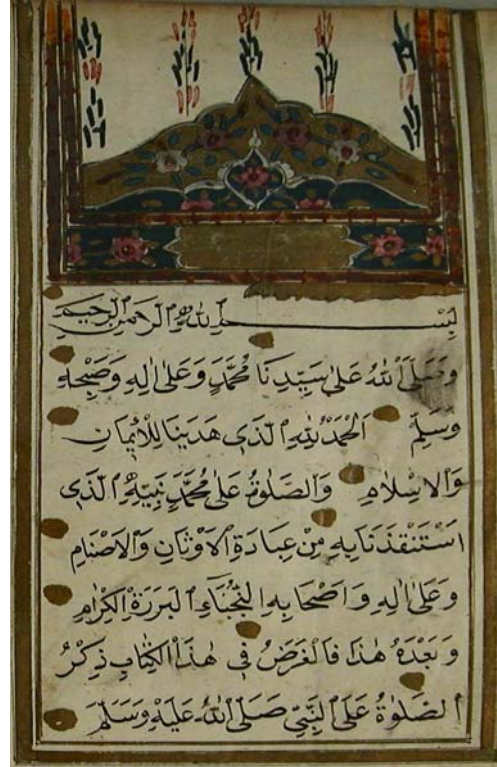 بِسْــــمِ اللّٰهِ الرَّحْمٰنِ الرَّحِيمِ
وَصَلَّى اللّٰهُ عَلٰى سَيِّدِنَا مُحَمَّدٍ وَعَلٰى اٰلِهِ وَصَحْبِهِ
وَسَلِّمْ اَلْحَمْدُ لِلّٰهِ الَّذِى هَدٰينَا لِلْاٖيمَانِ
وَالْاِسْلَامِ وَالصَّلٰوةُ عَلٰى مُحَمَّدٍ نَبِيِّهِ الَّذِى
اسْتَنْقَذَنَا بِهِ مِنْ عِبَادَةِ الْاَوْثَانِ وَالْاَصْنَامِ
وَعَلٰى اٰلِهِ وَاَصْحَابِهِ النُّجَبَاءِ الْبَرَرَةِ الْكِرَامِ
وَبَعْدَهُ هٰذَا فَالْغَرَضُ فِى هٰذَا الْكِتَابِ ذِكْرُ
الصَّلٰوةُ عَلَى النَّبِيِّ صَلَّى اللّٰهُ عَلَيْهِ وَسَلَّمَ